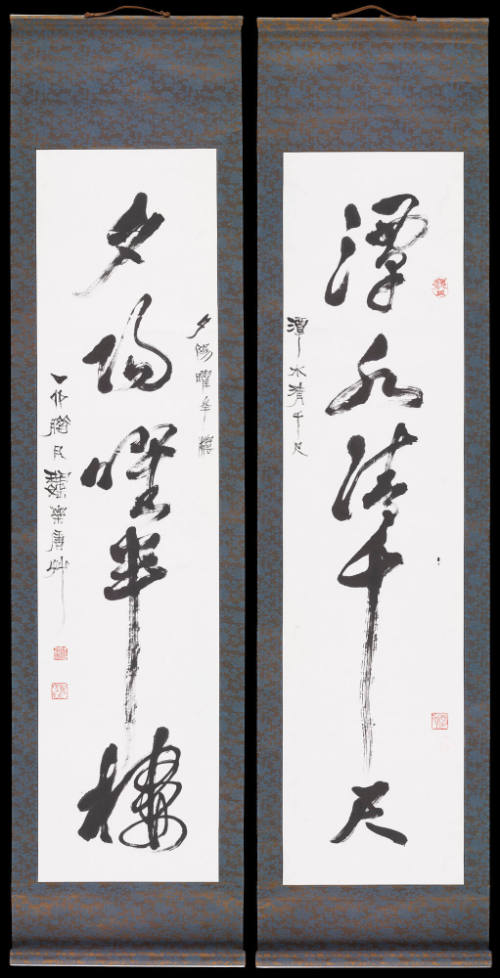 潭水清千尺
潭水清千尺
夕陽曜半樓
夕陽曜半樓
月魏樂唐艸